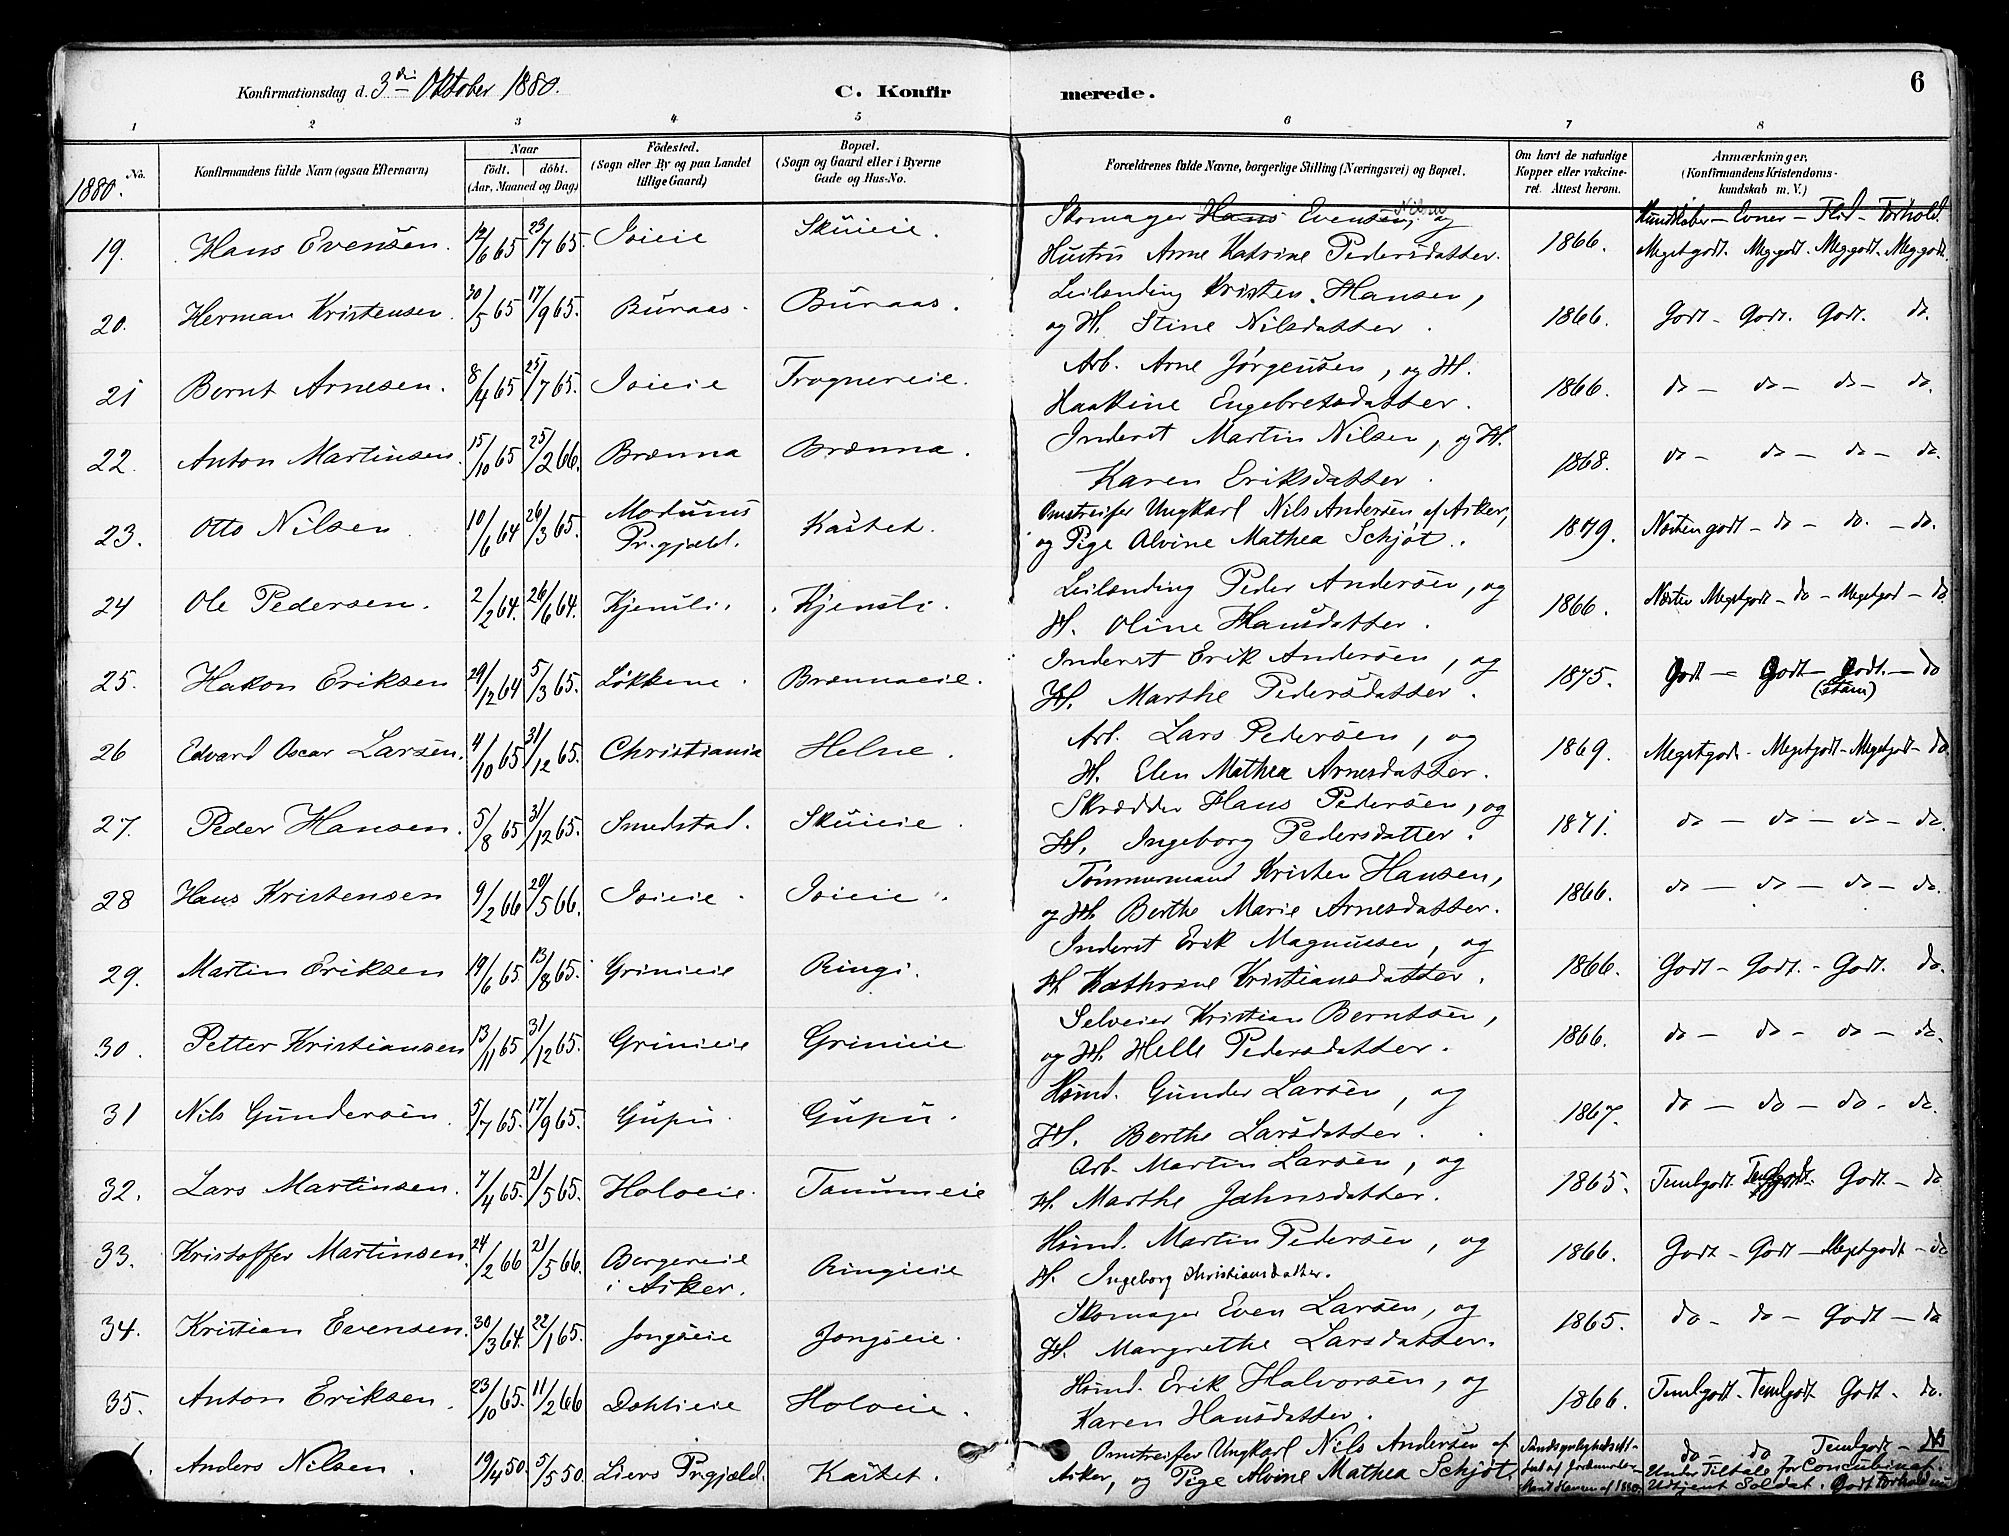 Konfirmationsdag d. 3die Oktober 1880.
C. Konfirmerede.
6
1 2 3 4 5 6 7 8
No.
1880.
Konfirmandens fulde Navn (ogsaa Efternavn)
Naar
født. døbt.
(Aar, Maaned og Dag)
Fødested.
(Sogn eller By og paa Landet
tillige Gaard)
Bopæl.
(Sogn og Gaard eller i Byerne
Gade og Hus-No.
Forældrenes fulde Navne, borgerlige Stilling (Næringsvei) og Bopæl.
Om havt de naturlige
Kopper eller vakcine-
ret. Attest herom.
Anmærkninger.
(Konfirmandens Kristendoms-
kundskab m. V.)
Kundskaber - Evner - Flid - Forhold.
19. Hans Evensen. 12/6 65 23/7 65. Ioieie Skuieie. Skomager Hans Evensen, Nilsen og
Hustru Anne Katrine Pedersdatter. 1866. Megetgodt. Meg.godt. Meg.godt. Meg.godt.
20. Herman Kristensen. 30/5 65 17/9 65. Buraas. Buraas. Leilænding Kristen Hansen,
og H. Stine Nilsdatter. 1866. Godt - Godt. Godt. do.
21 Bernt Arnesen. 8/4 65 25/7 65. Ioieie Trognereie. Arb. Arne Jørgensen, og H.
Haakine Engebretsdatter. 1866. do - do - do - do.
22. Anton Martinsen. 15/10 65 25/2 66. Brænna Brænna. Inderst Martin Nilsen, og H.
Karen Eriksdatter. 1868. do - do - do - do.
23. Otto Nilsen 10/6 64 26/3 65. Modums
Pr.gjæld. Kastet. Omstreifer Ungkarl Nils Andersen af Asker,
og Pige Alvine Mathea Schjøt. 1879. Næsten godt - do - do. - do.
24 Ole Pedersen. 2/2 64. 26/6 64. Kjensli. Kjensli. Leilænding Peder Andersen, og
H. Oline Hansdatter. 1866. Næsten Megetgodt - do - Megetgod - do.
25. Hakon Eriksen 29/12 64 5/3 65. Løkkene. Brænnaeie. Inderst Erik Andersen, og
H. Marthe Pedersdatter. 1875. Godt - Godt - Godt. - do
(stam)
26 Edvard Oscar Larsen. 4/10 65 31/12 65. Christiania Helne. Arb. Lars Pedersen, og
H. Elen Mathea Arnesdatter. 1869. Megetgodt - Megetgodt - Megetgodt - do.
27. Peder Hansen. 5/8 65 31/12 65. Smedstad. Skuieie. Skrædder Hans Pedersen, og
H. Ingeborg Pedersdatter. 1871. do - do - do - do.
28 Hans Kristensen 9/2 66 20/5 66. Ioieie. Ioieie. Tømmermand Kristen Hansen,
og H. Berthe Marie Arnesdatter. 1866. do - do - do - do.
29. Martin Eriksen 19/6 65 13/8 65. Grinieie Ringi. Inderst Erik Magnussen, og
H. Kathrine Kristiansdatter. 1866. Godt - Godt. - Godt. do.
30. Petter Kristiansen 13/11 65 31/12 65. Grinieie Grinieie Selveier Kristian Berntsen,
og H. Helle Pedersdatter. 1866. do - do - do - do.
31 Nils Gundersen. 5/7 65. 17/9 65. Gupu. Gupu. Hsmd. Gunder Larsen, og
H. Berthe Larsdatter. 1867. do - do - do. do.
32. Lars Martinsen. 7/4 65. 21/5 65. Holoeie. Tanumeie Arb. Martin Larsen, og
H. Marthe Jahnsdatter. 1865. Temlgodt. Temlgodt. Godt. - do
33. Kristoffer Martinsen. 24/2 66 21/5 66. Bergereie
i Asker. Ringieie Hsmd. Martin Pedersen, og
H. Ingeborg Christiansdatter. 1866. Godt - Godt - Megetgodt - do
34. Kristian Evensen. 30/3 64. 22/1 65. Jongseie Jongseie. Skomager Even Larsen, og
H. Margrethe Larsdatter. 1865. do - do - Godt - do
35. Anton Eriksen. 23/10 65. 11/2 66 Dahlieie Holoeie. Hsmd. Erik Halvorsen, og
Karen Hansdatter. 1866. Temlgodt - Temlgodt Godt. - do.
Anders Nilsen. 19/4 50. 5/5 50. Liers Prgjæld. Kastet. Omstreifer Ungkarl Nils Andersen af
Asker, og Pige Alvine Mathea Schjøt. do - do Temlgodt -
Under Tiltale for Concubinat.
Udtjent Soldat. Godt Forhold nu